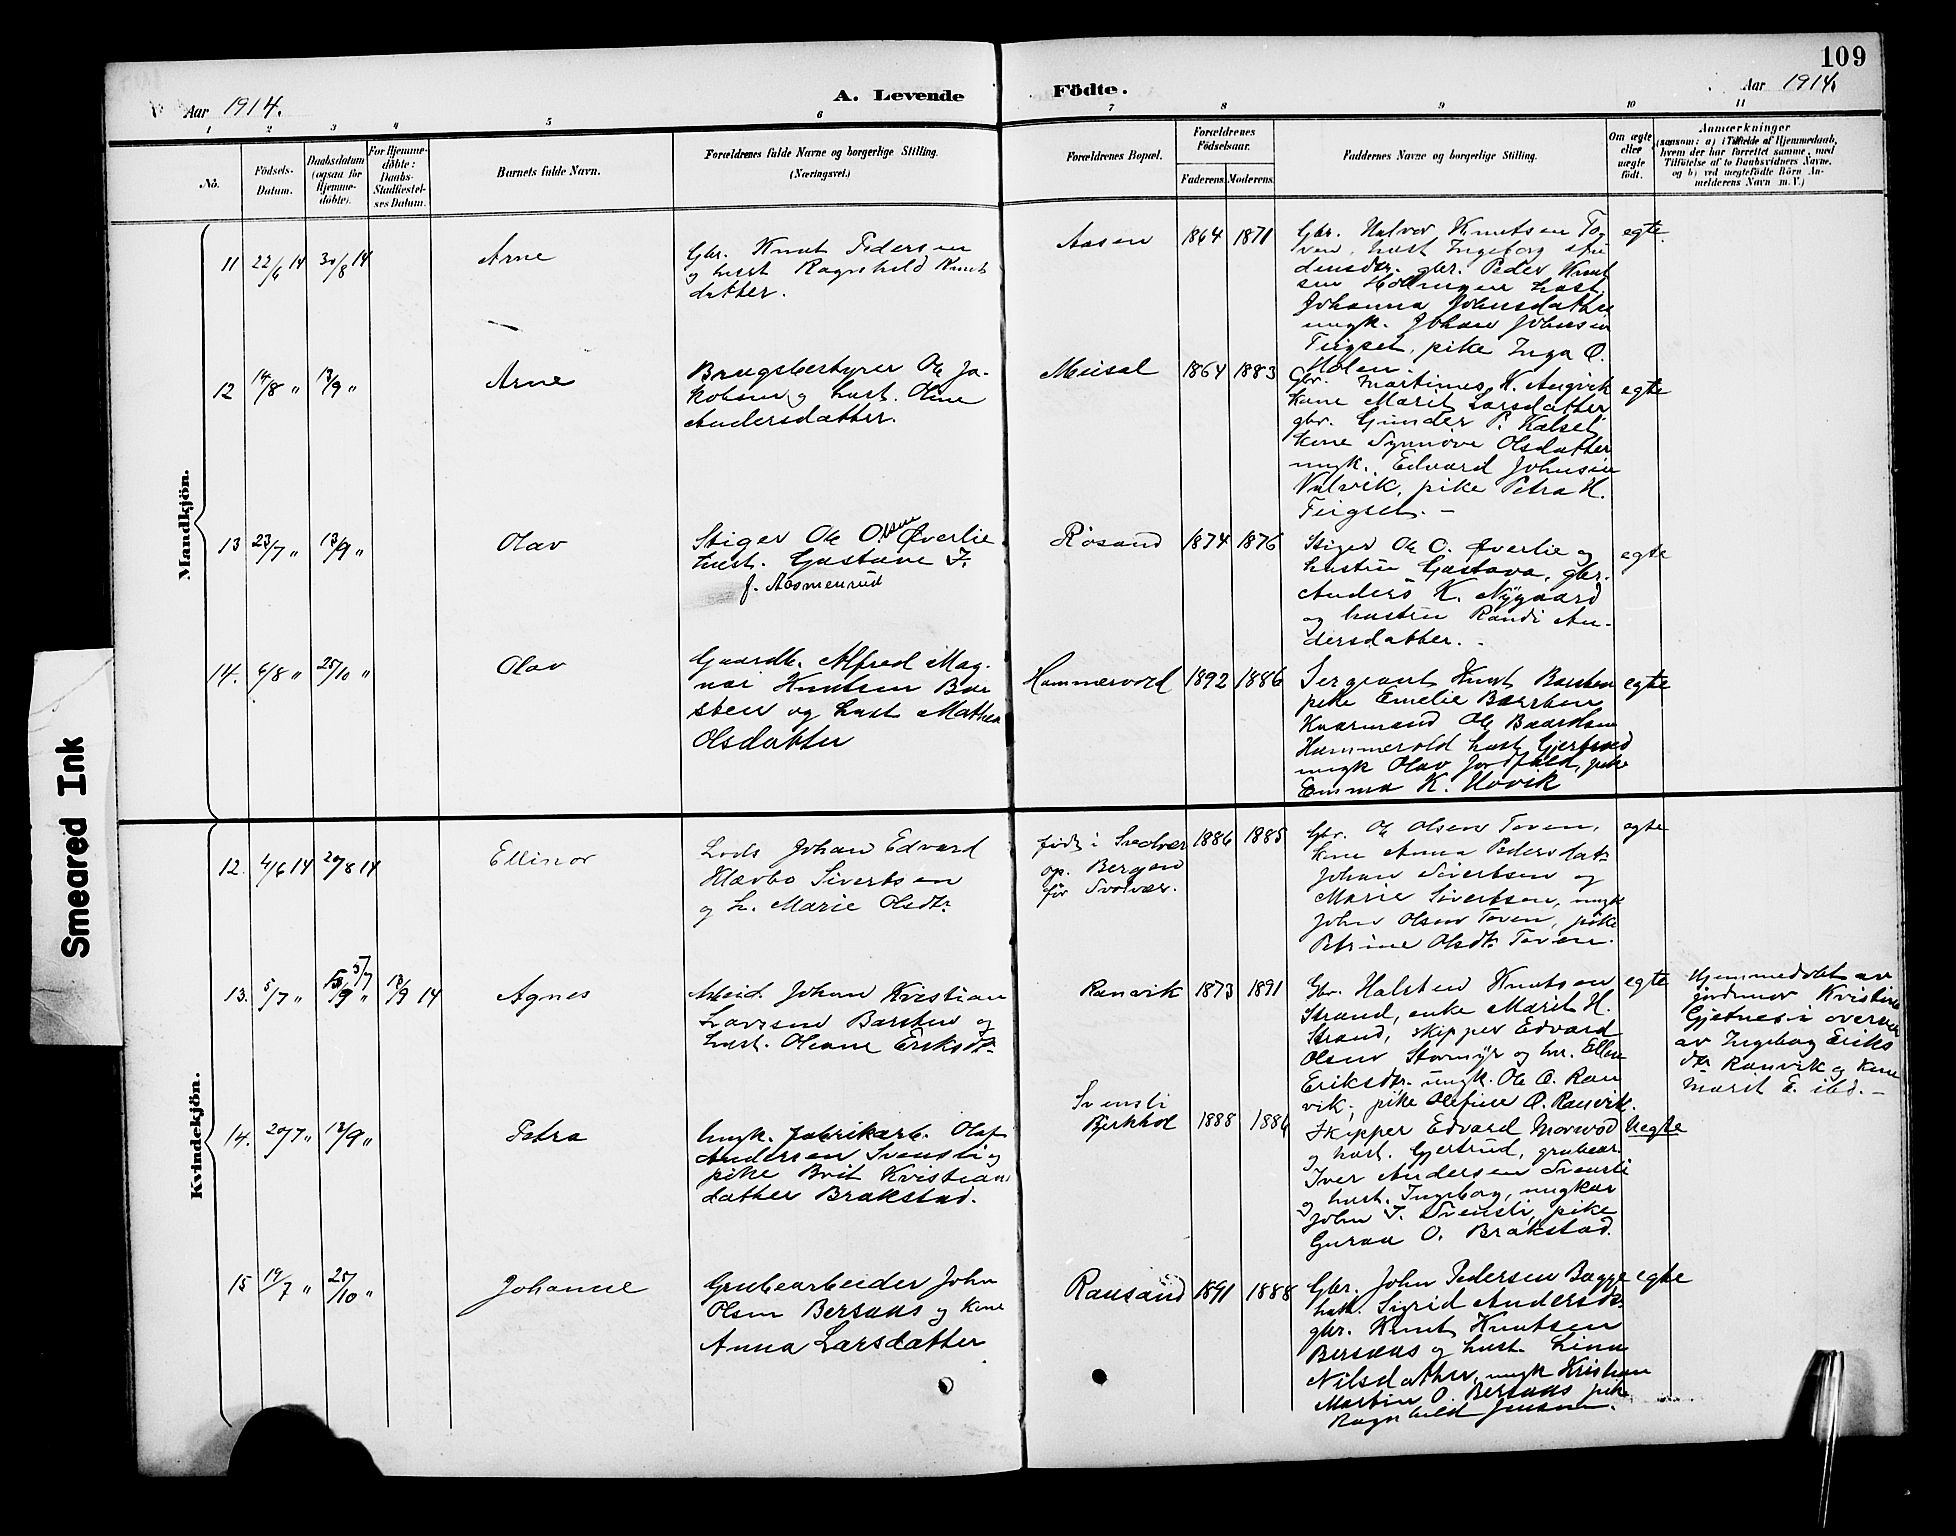 109
Aar 1914.
A. Levende
Födte.
Aar 1914.
1
2
3
4
5
6
7
8
9
10
11
No.
Födsels-
Datum.
Daabsdatum
(ogsaa for
Hjemme-
döbte).
For Hjemme-
döbte:
Daabs-
Stadfæstel-
ses Datum.
Barnets fulde Navn.
Forældrenes fulde Navne og borgerlige Stilling.
(Næringsvei.)
Forældrenes Bopæl.
Forældrenes
Födselsaar.
Faderens.
Moderens.
Faddernes Navne og borgerlige Stilling.
Om ægte
eller
uægte
födt.
Anmærkninger
(saasom: a) i Tilfælde af Hjemmedaab,
hvem der har forrettet samme, med
Tilföielse af to Daabsvidners Navne,
og b) ved uægtefödte Börn An-
melderens Navn m. V.)
Mandkjön.
11
22/6 14
30/8 14
Arne
Gbr. Knut Pedersen
og hust Ragnhild Knuts
datter.
Aasen
1864
1871
Gbr. Halvor Knutsen To-
ven, hust Ingeborg
densdtr. gbr. Peder Knut
sen hust.
Johanna Johnsdatter
ungk. Johan Johnsen
Teigset, pike Inga O.
Holen.
egte.
12
14/8 "
13/9 "
Arne
Brugsbestyrer Ole Ja-
kobsen og hust. Oline
Andersdatter.
Meisal
1864
1883
Gbr. Martinus K. Angvik
kone Marit Larsdatter
gbr. Gunder P. Kalset
kone Synnøve Olsdatter
ungk. Edvard Johnsen
Valvik, pike Petra H.
Teigset. -
egte
13
23/7 "
13/9 "
Olav
Stiger Ole Olsen Øverlie
hust. Gustava F.
f. Aasmenrud
Røsand
1874
1876
Stiger Ole O. Øverlie og
hustru Gustava, gbr.
Anders K. Nygaard
og hustru Randi An-
dersdatter. -
egte
14.
6/8 "
25/10 "
Olav
Gaardb. Alfred Mag-
nar Knutsen Bar
sten og hust Mathea
Olsdatter
Hammervold
1892
1886
Sergeant Knut Barsten
pike Emelie Barsten
Kaarmand Ole Baardsen
Hammerold hust Gjertrud
ungk Olav Jordfald, pike
Emma K. Hovik
egte
Kvindekjön.
12.
4/6 14
20/8 14
Ellinor
Lods Johan Edvard
Klævbo Sivertsen
og h. Marie Olsdtr.
født i Svolvær
op. Bergen
før Svolvær.
1886
1885
Gbr. Ole Olsen Toven,
kone Anna Pedersdat-
Johan Sivertsen og
Marie Sivertsen, ungk
John Olsen Toven, pike
Petrine Olsdtr Toven.
egte
13.
5/7 "
5/7
13/9 "
13/9 14
Agnes
Arbeid. Johan Kristian
Larsen Barsten og
hust. Oleane Eriksdtr.
Ranvik
1873
1891
Gbr. Halsten Knutsen
Strand, enke Marit H.
Strand, skipper Edvard
Olsen Stormyr og hu. Ellen
Eriksdtr. ungk. Ole O. Ran
vik, pike Olefine O. Ranvik.
egte
Hjemmedøbt av
jordmor Kristine
Gjetnes i overvær
av Ingeborg Eriks
dtr Ranvik og kone
Marit E. ibd. -
14.
20/7 "
13/9 "
Petra
Ungk. fabrikarb. Olaf
Andersen Svensli og
pike Brit Kristian
datter Brakstad.
Svensli
Bjerkhol
1888
1886
Skipper Edvard Morvold
og hust. Gjertrud, grubear.
Iver Andersen Svensli
og hust. Ingeborg, ungkar
John I. Svensli, pike
Guraa O. Brakstad.
Uegte
15
19/7 "
25/10 "
Johanne
Grubearbeider John
Olsen Bersaas og kone
Anna Larsdatter
Rausand
1891
1888
Gbr. John Pedersen Bagge
hust. Sigrid Andersdtr.
gbr. Knut Knutsen
Bersaas og hust. Lina
Nilsdatter, ungk Kristian
Martin O. Bersaas pike
Ragnhild Jensen.
egte
Smeared Ink